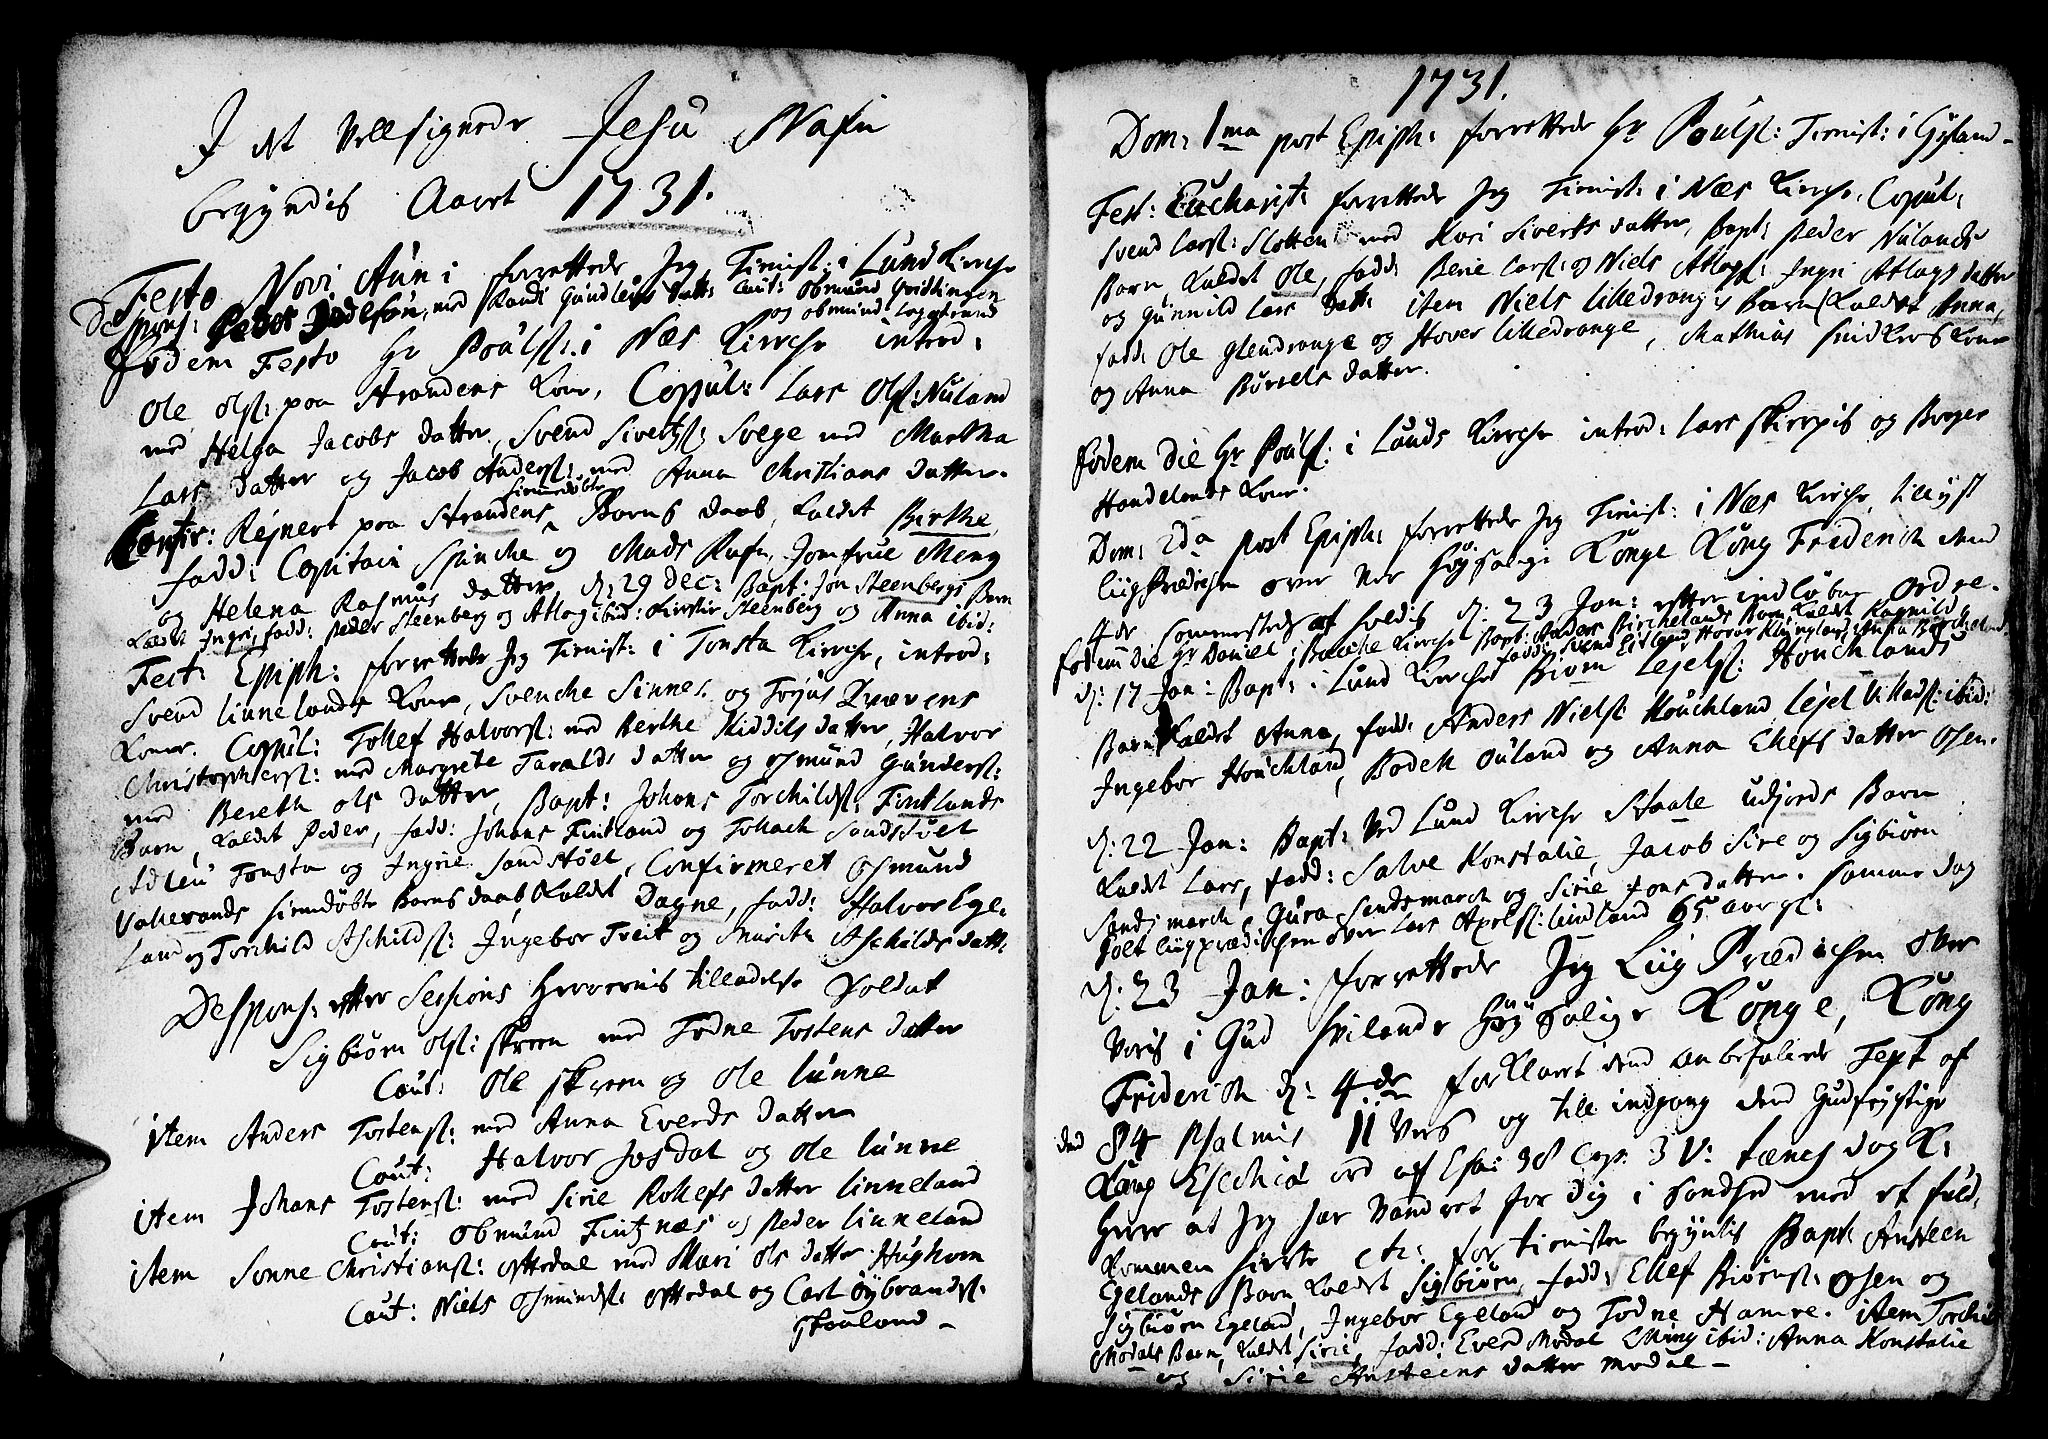 I det Velsignede Jesu Nafn
begyndis Aaret 1731.
Festo Novi Anni forrettede Jeg Tienist: i Lund Kirche
Despons: Peder Jodelsøn, med Randi Gundleigs datt: Caut: Obmund Qvidlingen
og Obmund Leggerund
Eodem Festo Hr Poulss: i Næs Kirche introd:
Ole Olss: paa Strandens Kone, Copul: Lars Olss: Nuland
med Helga Jacobs datter, Svend Sivertss: Svege med Martha
Lars datter og Jacob Anderss: med Anna Christians datter.
Confir: Rejnert paa Strandens hiemedøbte Barns daab, kaldet Birthe,
fadd: Capitain Spincke og Mads Rafn, Jomfrue Meng
og Helena Rasmus datter, d: 29 Dec: Bapt: Jon Steenbergs Barn
kaldt Ingri, fadd: Peder Steenberg og Atlog ibid: Kirstie Steenberg og Anna ibid:
Fest: Epiph: forrettede Jeg Tienist: i Tonsta Kirche, introd:
Svend Linnelands Kone, Svencke Sinnes og Tojus Qvævens
Koner. Copul: Tollef Halvorss: med Berthe Kiddils datter, Halvor
Christopherss: med Margrete Taralds datter og Osmund Gunderss:
med Bereth Ols datter, Bapt: Johans Torchildss: Fintlands
Barn, kaldet Peder, fadd: Johans Fintland og Tollach Sandstøel
Adleu Tonsta og Ingrie Sandstøel, Confirmeret Osmund
Vallevands hiemdøbte Barns daab, kaldet Dagne, fadd: Halvor Ege-
land og Torchild Aschildss: Ingebor Tveit og Marith Aschilds datt:
Despons: efter Sessions Herrernis tilladelse Soldat
Sigbiørn Olss: Skreen med Todne Tostens datter
Caut: Ole Skreen og Ole Lunne
item Anders Tostenss: med Anna Everds datter
Caut: Halvor Josdal og Ole Lunne
item Johans Tostenss: med Sirie Rollefs datter Linneland
Caut: Obmund Fintznæs og Peder Linneland
item Sonne Christianss: Ostedal med Mari Ols datter Hughom
Caut: Niels Osmundss: Ostedal og Carl Øybrandss:
Skouland -
1731.
Dom: 1ma post Epiph: forrettede Hr Poulss: Tienist: i Gyland -
Fest: Eucharist: forrettede Jeg Tienist: i Næs Kirche. Copul:
Svend Larss: Slotten med Kari Siverts datter, Bapt: Peder Nulands
Barn kaldet Ole, fadd: Berie Larss: og Niels Atlogss: Ingri Atlogs datter
og Gunnild Lars datt: item Niels Lilledranges Barn kaldet Anna,
fadd: Ole Glendrange og Hover Lilledrange, Mathias Snidkers Kone
og Anna Børrels datter.
Eodem Die Hr Poulss: i Lunds Kirche introd: Lars Skerpis og Borger
Handelands Kone.
Dom: 2da post Epiph: forrettede Jeg Tienist: i Næs Kirche, tillyst
Liigprædichen over Vor Høysalige Konge Kong Friderich dend
4de sammestedz at holdis d: 23 Jan: efter indløbne Ordre.
Eodem die Hr Daniel i Backe Kirche Bapt: Anders Birchelands Barn kaldet Ragnild,
fadd: Svend Eitland, Hovar Klungland, Anna Bircheland
d: 17 Jan: Bapt: i Lund Kirche Biørn Lejelss: Houchlands
Barn kaldet Anna, fadd: Anders Nielss: Houchland Lejel Villadss: ibid:
Ingebor Houchland, Bodell Ouland og Anna Ellefs datter Osen.
d: 22 Jan: Bapt: ved Lund Kirche Staale Udjords Barn
kaldet Lars, fadd: Salve Konstalie, Jacob Sire og Sigbiørn
Sandsmarch, Gura Sandsmarch og Sirie Jons datter. Samme dag
holt liigprædichen over Lars Axelss: Lindland 65 aar gl:
d: 23 Jan: forrettede Jeg Liig Prædichen over
Voris i Gud Hvilende Høysalige Konge, Kong
Friderich d: 4de forklaret dend anbefalede Text af
ded 84 Psalmis 11 Vers og till indgang dend Gudfrygtige
Kong Esechiæ ord af Esai: 38 Cap: 3 V: Kiere tænck dog
Herre at Jeg har Vandret for dig i Sandhed med et fuld-
kommen hierte etc: for tienisten begyntis Bapt: Ansteen
Egelands Barn kaldet Sigbiørn, fadd: Ellef Biørnss: Osen og
Sigbiørn Egeland, Ingebor Egeland og Todne Hamre. item Torchild
Modals Barn, kaldet Sirie, fadd: Everd Modal Elling ibid: Anna Konstalie
og Sirie Ansteens datter Modal -